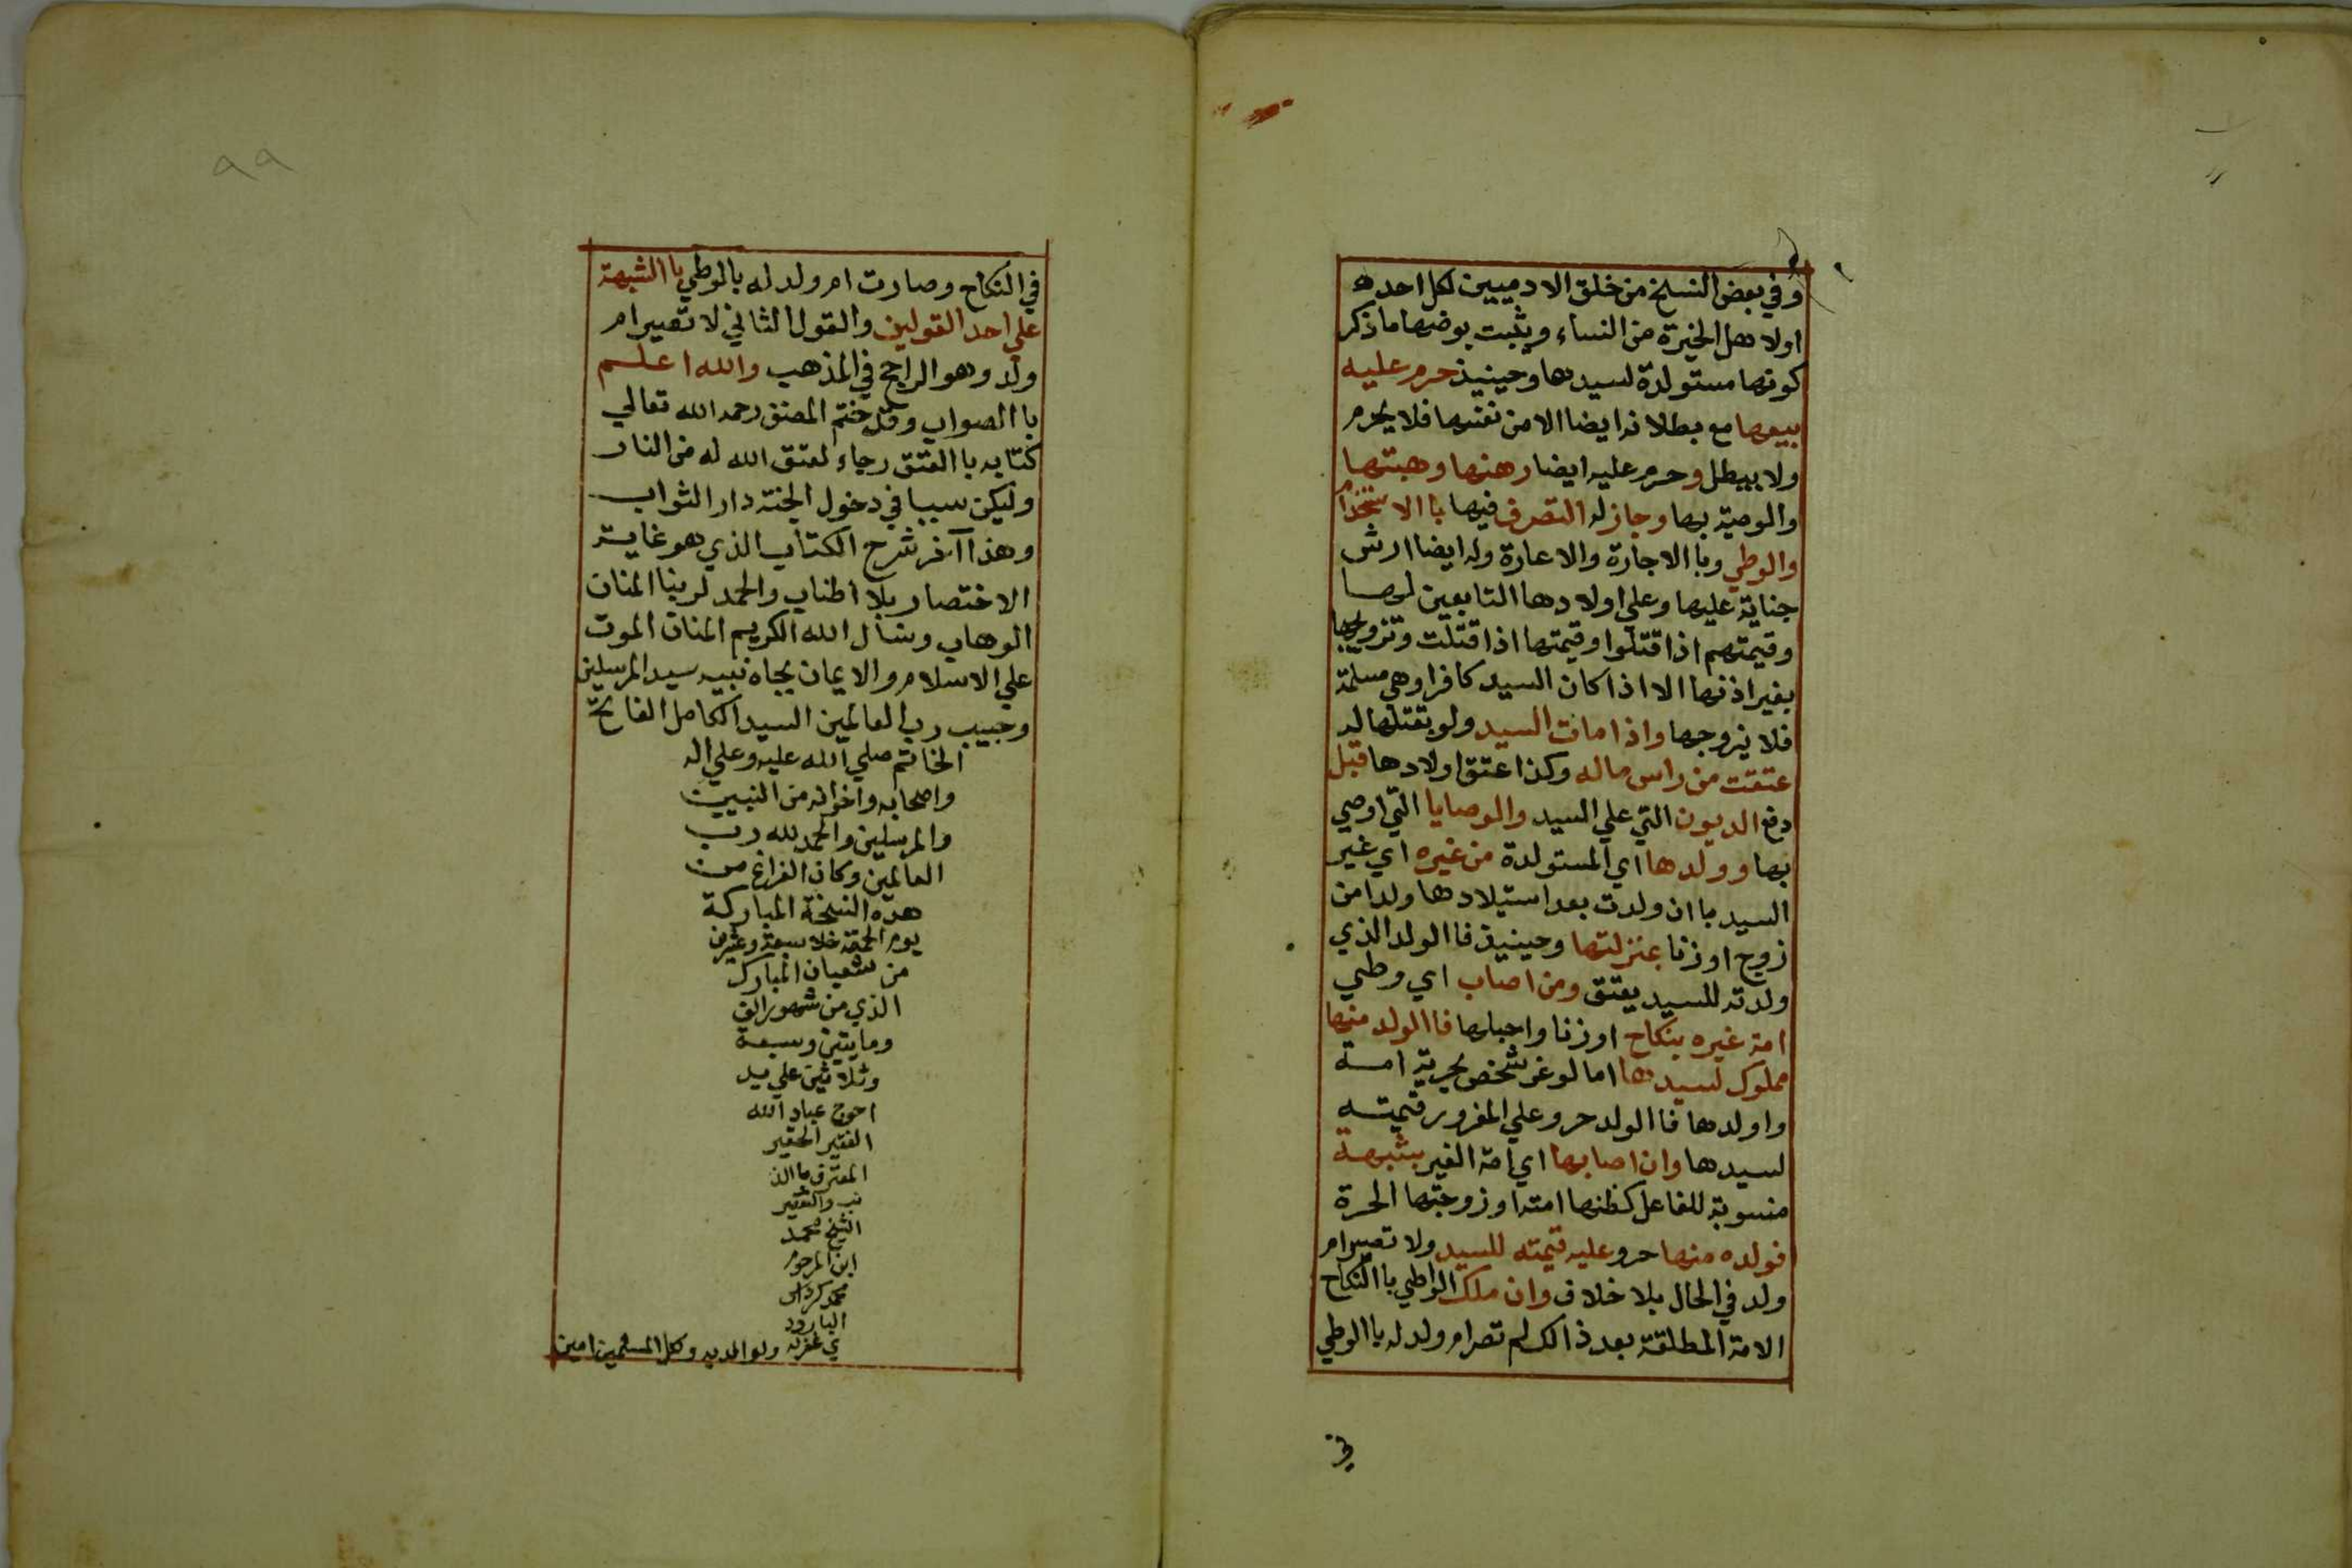 وفي بعض النسخ من خلق الادميين لكل احده
اولا هل الخبرة من النساء ويثبت بوضعها ما ذكر
كونها مستولدة لسيدها وحينيذ حرم عليه
بيعها مع بطلانه ايضا الا من نفسها فلا يحرم
ولا يبطل وحرم عليه ايضا رهنها وهبتها
والوصية بها وجاز له التصرف فيها باالاستخدام
والوطي وباالاجارة والاعارة وله ايضا ارش
جناية عليها وعلي اولادها التابعين لها
وقيمتهم اذا قتلوا وقيمتها اذا قتلت وتزويجها
بغير اذنها الا اذا كان السيد كافرا وهي مسلمة
فلا يزوجها واذا مات السيد ولو بقتلها له
عتقت من راس ماله وكذا عتق اولادها قبل
دفع الديون التي علي السيد والوصايا التي اوصي
بها وولدها اي المستولدة من غيره اي غير
السيد باان ولدت بعد استيلادها ولدا من
زوج او زنا بمنزلتها وحينيذ فاالولد الذي
ولدته للسيد يعتق ومن اصاب اي وطي
امة غيره بنكاح او زنا واحبلها فاالولد منها
مملوك لسيدها اما لو غر شخص بحرية امة
واولدها فاالولد حر وعلي المغرور قيمته
لسيدها وان اصابها اي امة الغير بشبهة
منسوبة للفاعل كظنها امته او زوجتها الحرة
فولده منها حر وعليه قيمته للسيد ولا تصير ام
ولد في الحال بلا خلاف وان ملك الواطي باالنكاح
الامة المطلقة بعد ذالك لم تصر ام ولد له باالوطي
في
٩٩
في النكاح وصارت ام ولد له بالوطي باالشبهة
علي احد القولين والقول الثاني لا تصير ام
ولد وهو الراجح في المذهب والله اعلم
باالصواب وقد ختم المصنف رحمه الله تعالي
كتابه باالعتق رجاء لعتق الله له من النار
وليكن سببا في دخول الجنة دار الثواب
وهذا آخر شرح الكتاب الذي هو غاية
الاختصار بلا اطناب والحمد لربنا المنان
الوهاب ونسأل الله الكريم المنان الموت
علي الاسلام والايمان بجاه نبيه سيد المرسلين
وحبيب رب العالمين السيد الكامل الفاتح
الخاتم صلي الله عليه وعلي اله
واصحابه واخوانه من النبيين
والمرسلين والحمد لله رب
العالمين وكان الفراغ من
هذه النسخة المباركة
يوم الجمعة خلا سبعة وعشرين
من شعبان المبارك
الذي من شهور الف
ومايتين وسبعة
وثلاثين علي يد
احوج عباد الله
الفقير الحقير
المعترف باالذ
نب والتقصير
الشيخ محمد
ابن المرحوم
محمد
البارود
ي غفر له ولوالديه وكل المسلمين امين